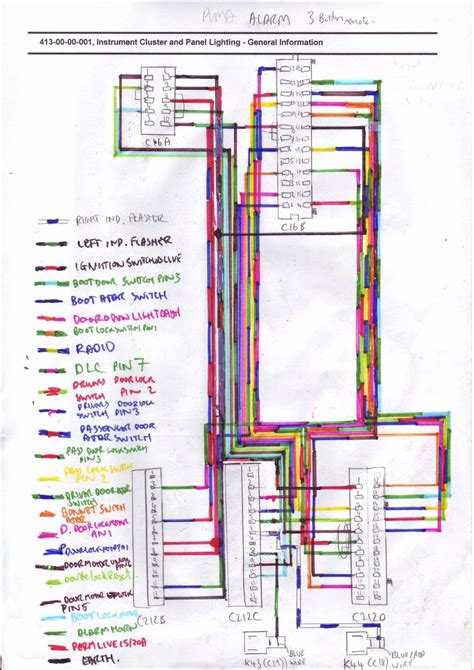 PUMA ALARM 3 Button remote.
413-00-00-001, Instrument Cluster and Panel Lighting - General Information
C16A
C16B
RIGHT IND. FLASHER
LEFT IND. FLASHER
IGNITION SWITCHED LIVE
BOOT DOOR SWITCH PIN 3
BOOT AJAR SWITCH
DOOR OPEN LIGHT
BOOT LOCK SWITCH PIN 1
RADIO
DLC PIN 7
DRIVERS DOOR LOCK
SWITCH PIN 2
DRIVERS DOOR LOCK
SWITCH PIN 3
PASSENGER DOOR
AJAR SWITCH
PASS DOOR LOCK SWITCH
PIN 3
LOCK SWITCH
PIN 2
DRIVER DOOR AJAR
SWITCH
BONNET SWITCH
AJAR
D. DOOR LOCK MOTOR
DOOR LOCK MOTOR
DOUBLE LOCK RESET
DOOR MOTOR
PIN 5
BOOT LOCK MOTOR
ALARM HORN
PERM LIVE 15/20A
EARTH.
C212B
C212C
C212D
BLUE
K43 (C19)
BLUE/RED
K44 (C18)